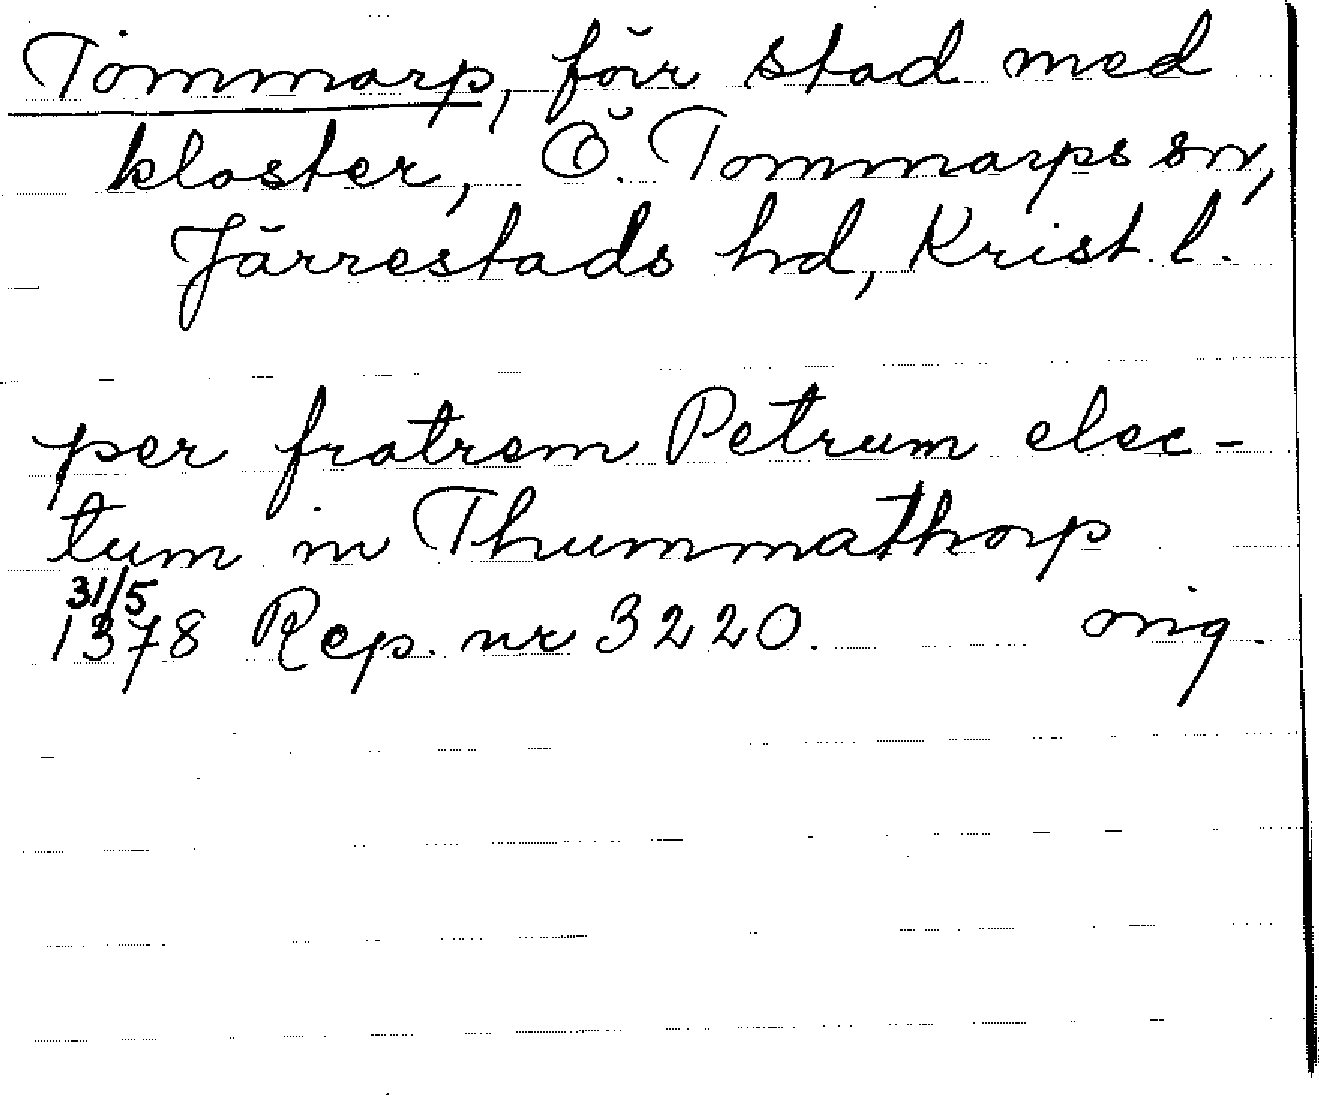 Tommarp, förr stad med
kloster, Ö. Tommarps sn,
Järrestads hd, Krist. l.
per fratrem Petrum elec-
tum in Thummathorp
31/5
1378 Rep. nr 3220. orig.